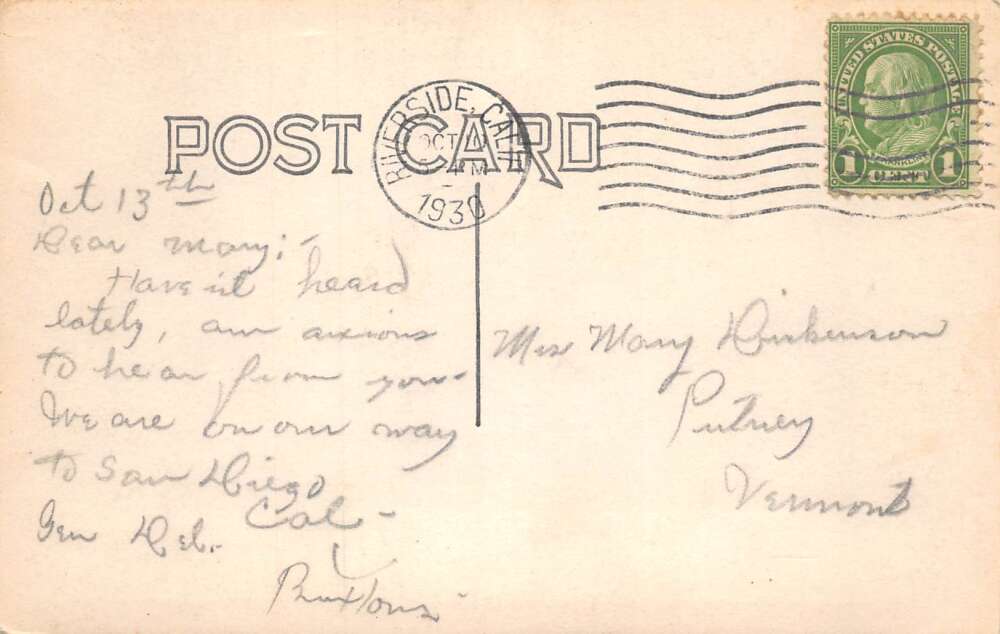 POST CARD
RIVERSIDE, CALIF.
OCT
PM
1930
UNITED STATES POSTAGE
FRANKLIN
1 CENT 1
Oct 13th
Dear Mary:-
Haven't heard
lately, am anxious
to hear from you-
We are on our way
to San Diego
Cal-
Gen Del.
Buxtons
Mrs Mary Dickenson
Putney
Vermont